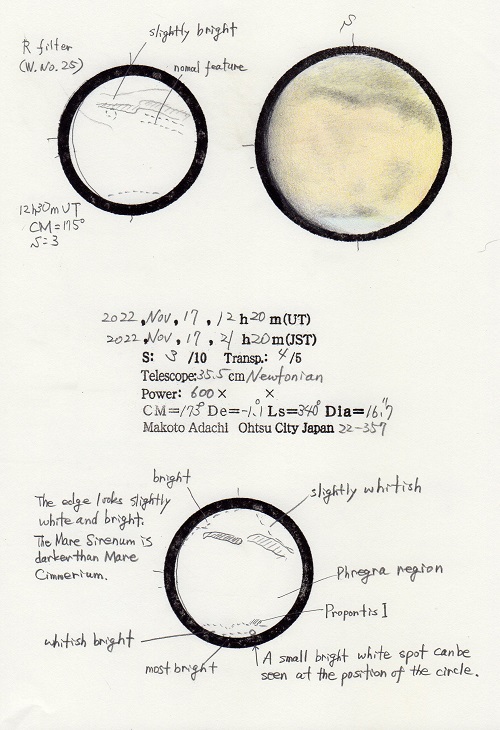 slightly bright
R filter
(W.No.25)
nomal feature
S
12h30m UT
CM=175°
S=3
2022, Nov, 17, 12 h 20 m(UT)
2022, Nov, 17, 21 h 20 m(JST)
S: 3 /10 Transp.: 4 /5
Telescope: 35.5 cm Newtonian
Power: 600 × ×
CM=173° De=-1.1° Ls=340° Dia=16."7
Makoto Adachi Ohtsu City Japan 22-357
bright
slightly whitish
The edge looks slightly
white and bright.
The Mare Sirenum is
darker than Mare
Cimmerium.
Phregra region
Propontis I
whitish bright
most bright
A small bright white spot can be
seen at the position of the circle.